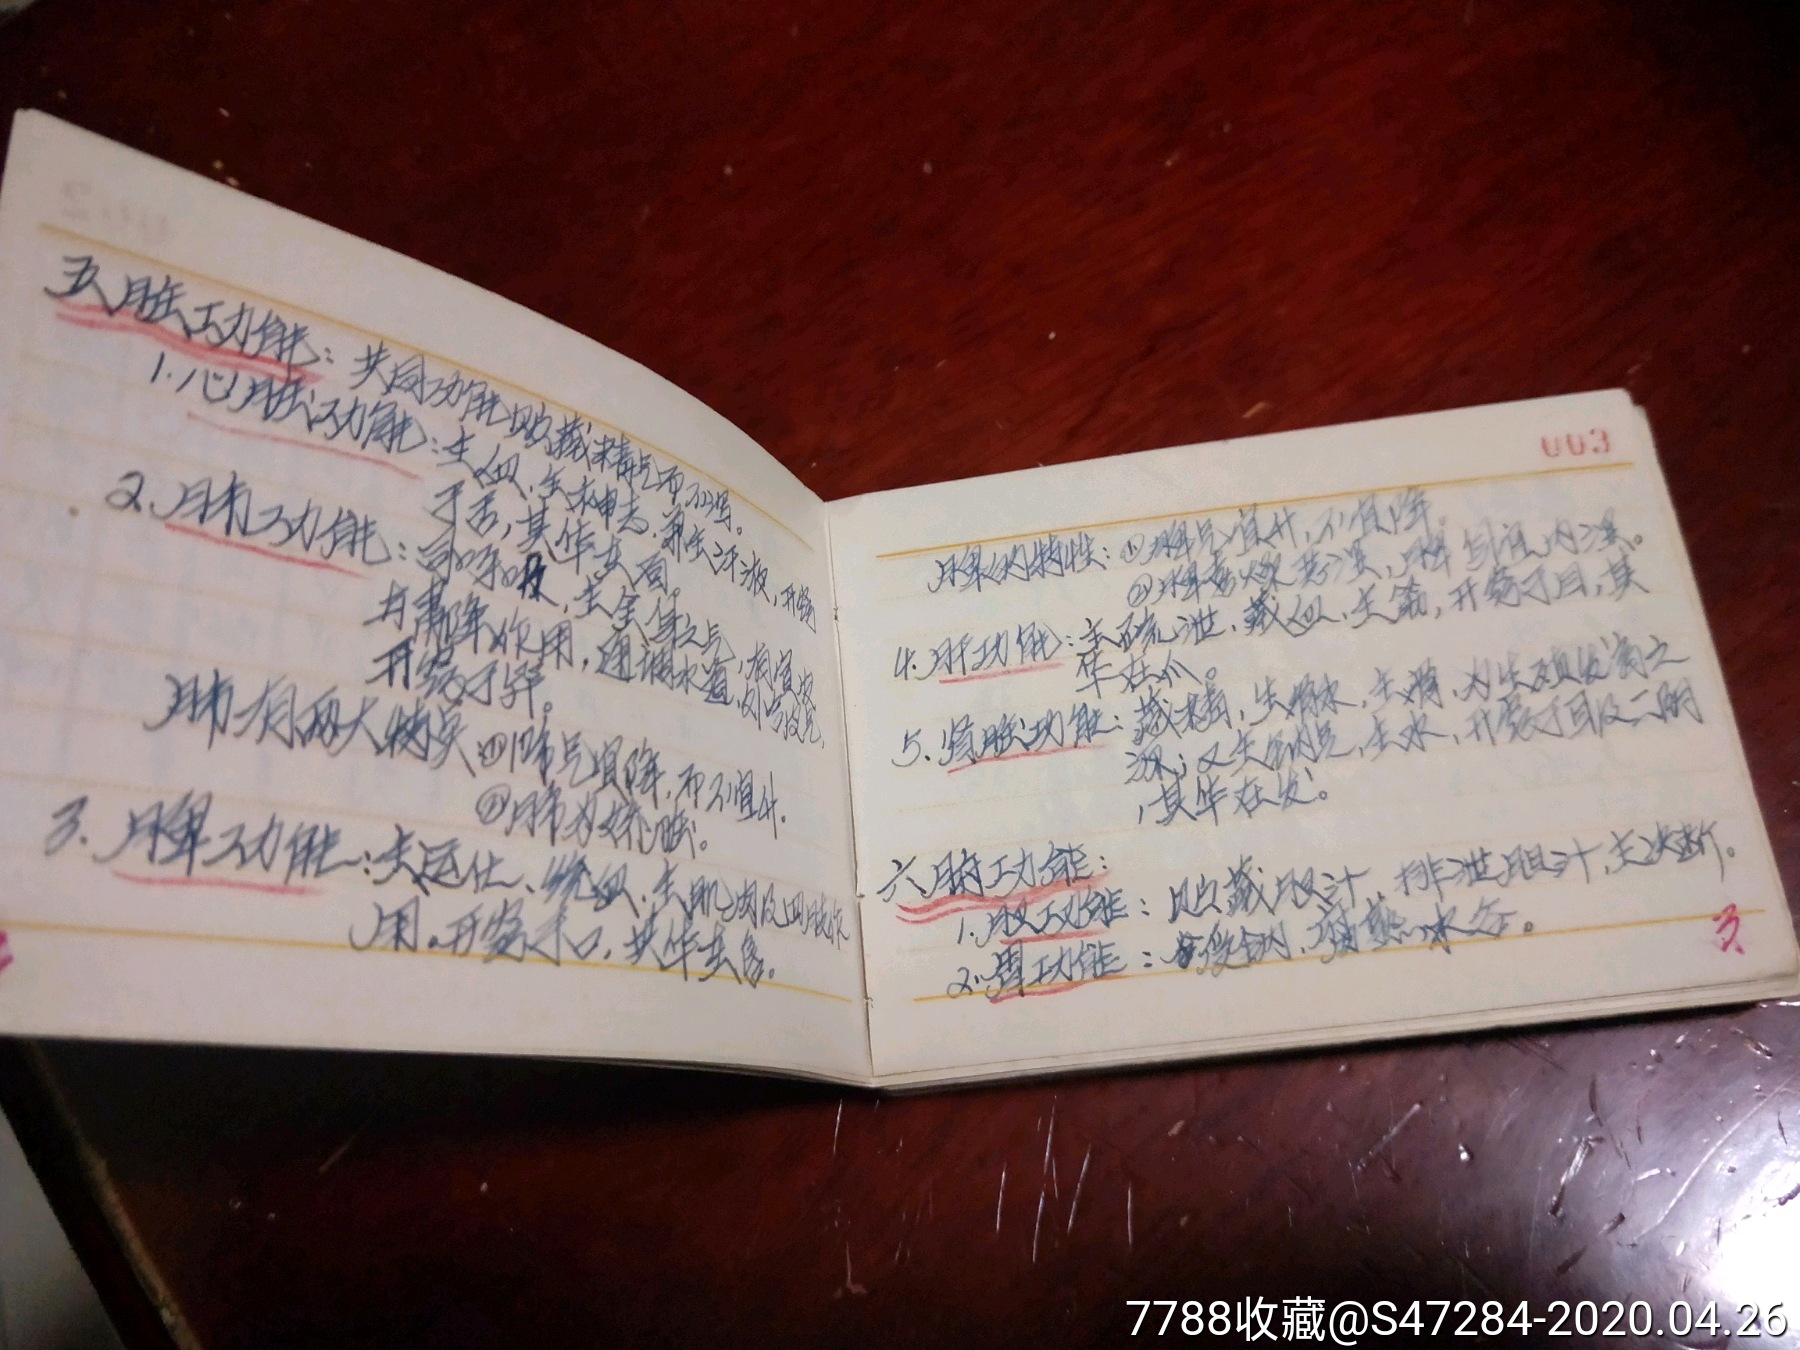 五脏功能：共同功能贮藏精气而不泻。
1.心脏功能：主血，主神志，兼主汗液，开窍
于舌，其华在面。
2.肺功能：司呼吸，主全身之气，有宣发
与肃降作用，通调水道，外合皮毛，
开窍于鼻。
肺有两大特点①肺气宜降，而不宜升。
②肺为娇脏。
3.脾功能：主运化、统血、主肌肉及四肢作
用。开窍于口，其华在唇。
003
脾的特性：①脾气宜升，不宜降。
②脾喜燥恶湿，脾阳虚内湿。
4.肝功能：主疏泄，藏血，主筋，开窍于目，其
华在爪。
5.肾脏功能：藏精，生髓，主骨，为生殖发育之
源；又主纳气，主水，开窍于耳及二阴
，其华在发。
六腑功能：
1.胆功能：贮藏胆汁，排泄胆汁，主决断。
2.胃功能：受纳，腐熟水谷。
3
7788收藏@S47284-2020.04.26